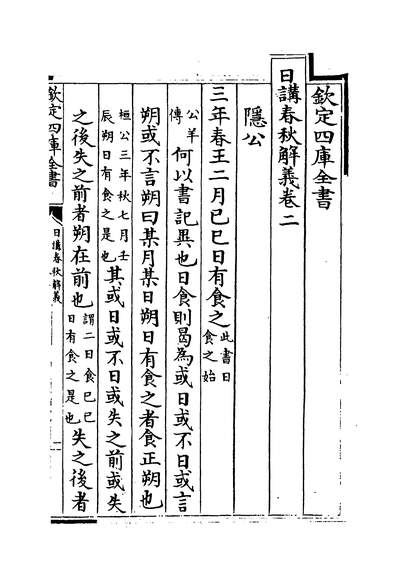 欽定四庫全書
日講春秋解義卷二
隱公
三年春王二月己巳日有食之此書日食之始
公羊傳何以書記異也日食則曷為或日或不日或言
朔或不言朔曰某月某日朔日有食之者食正朔也
桓公三年秋七月壬辰朔日有食之是也其或日或不日或失之前或失
之後失之前者朔在前也謂二日食己巳日有食之是也失之後者
欽定四庫全書
日講春秋解義
一